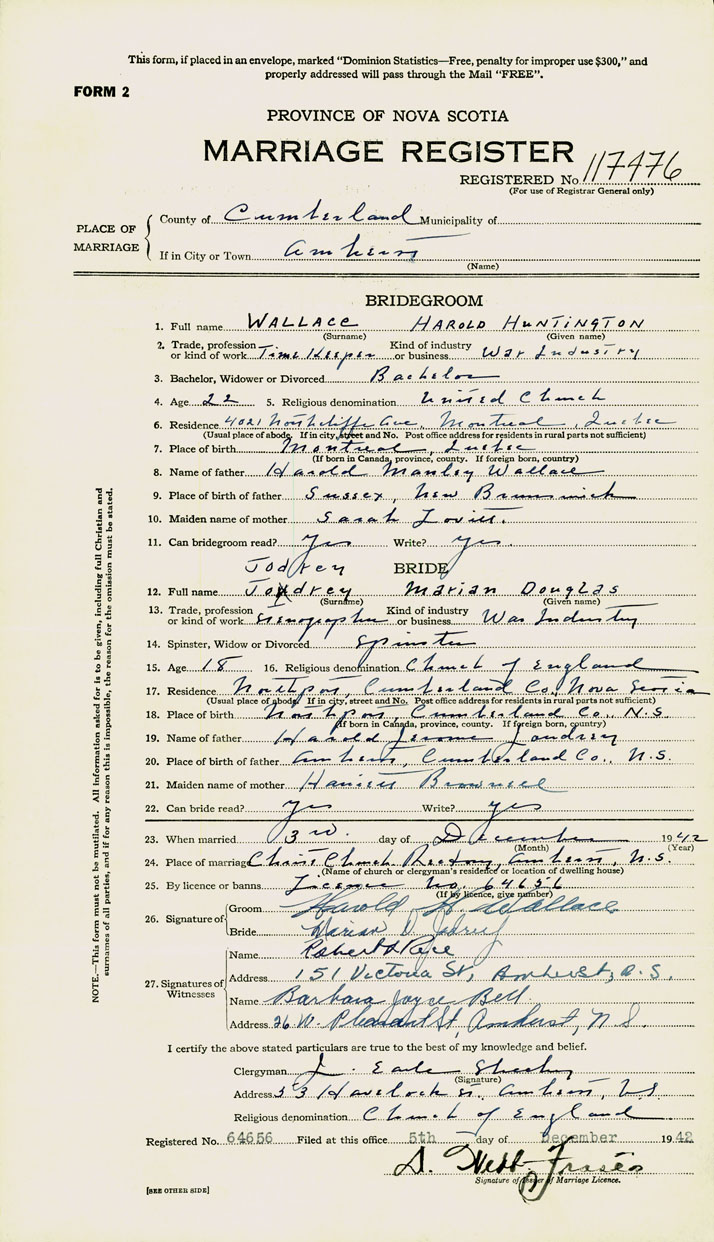 This form, if placed in an envelope, marked "Dominion Statistics—Free, penalty for improper use $300," and
properly addressed will pass through the Mail "FREE".
FORM 2
PROVINCE OF NOVA SCOTIA
MARRIAGE REGISTER
REGISTERED No. 117476
(For use of Registrar General only)
PLACE OF MARRIAGE
County of Cumberland Municipality of
If in City or Town Amherst
(Name)
BRIDEGROOM
1. Full name WALLACE HAROLD HUNTINGTON
(Surname) (Given name)
2. Trade, profession or kind of work Time Keeper Kind of industry or business War Industry
3. Bachelor, Widower or Divorced Bachelor
4. Age 22 5. Religious denomination United Church
6. Residence 4021 Northcliffe Ave, Montreal, Quebec
(Usual place of abode. If in city, street and No. Post office address for residents in rural parts not sufficient)
7. Place of birth Montreal, Quebec
(If born in Canada, province, county. If foreign born, country)
8. Name of father Harold Manley Wallace
9. Place of birth of father Sussex, New Brunswick
10. Maiden name of mother Sarah Lovitt.
11. Can bridegroom read? Yes Write? yes.
Jodrey
BRIDE
12. Full name Joudrey Marian Douglas
(Surname) (Given name)
13. Trade, profession or kind of work Stenographer Kind of industry or business War Industry
14. Spinster, Widow or Divorced Spinster
15. Age 18 16. Religious denomination Church of England
17. Residence Northport, Cumberland Co., Nova Scotia
(Usual place of abode. If in city, street and No. Post office address for residents in rural parts not sufficient)
18. Place of birth Northport, Cumberland Co., N.S.
(If born in Canada, province, county. If foreign born, country)
19. Name of father Harold Jerome Joudrey
20. Place of birth of father Amherst, Cumberland Co., N.S.
21. Maiden name of mother Brownell
22. Can bride read? yes Write? yes
23. When married 3rd. day of December 1942
(Month) (Year)
24. Place of marriage Christ Church Rectory, Amherst, N.S.
(Name of church or clergyman's residence or location of dwelling house)
25. By licence or banns Licence No. 64656
(If by licence, give number)
26. Signature of
Groom Harold H. Wallace
Bride Marian D. Jodrey
27. Signatures of Witnesses
Name Robert
Address 151 Victoria St, Amherst, N.S.
Name Barbara Joyce Bell.
Address 26 W. Pleasant St, Amherst, N.S.
I certify the above stated particulars are true to the best of my knowledge and belief.
Clergyman J. Earle
(Signature)
Address 53 Havelock St. Amherst, NS
Religious denomination Church of England
Registered No. 64656 Filed at this office 5th day of December 1942
D. Webb Fraser
Signature of Issuer of Marriage Licence.
[SEE OTHER SIDE]
NOTE.—This form must not be mutilated. All information asked for is to be given, including full Christian and
surnames of all parties, and if for any reason this is impossible, the reason for the omission must be stated.